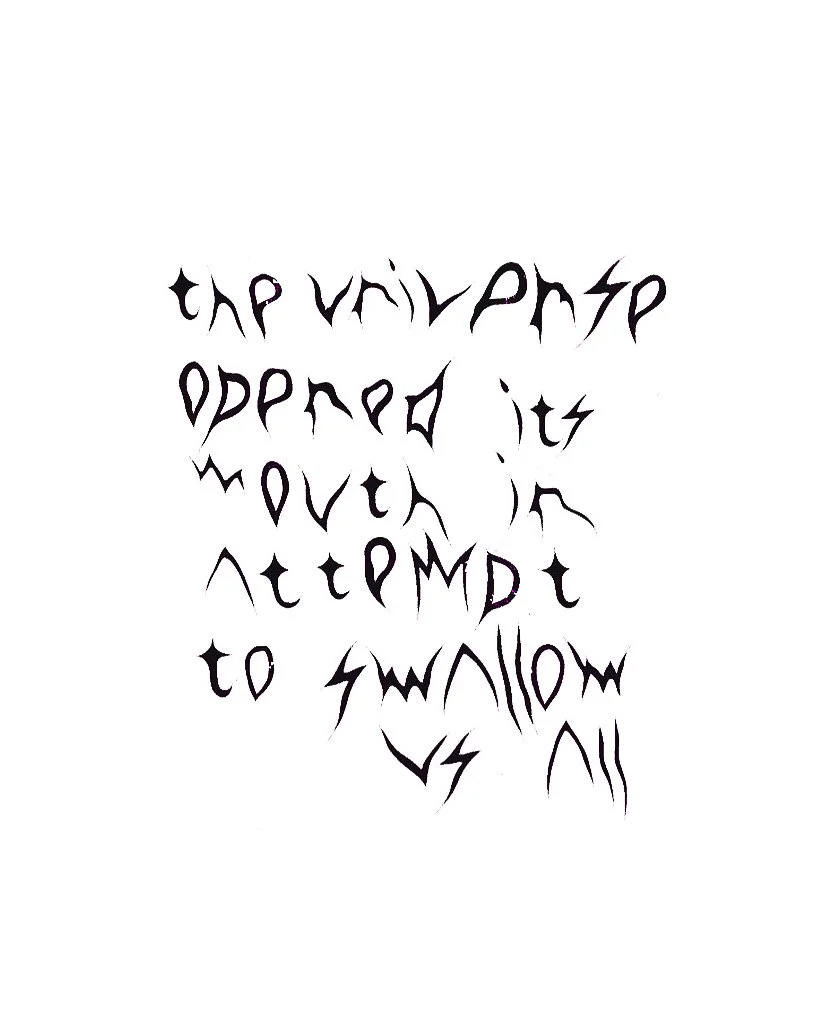 the universe
opened its
mouth in
attempt
to swallow
us all